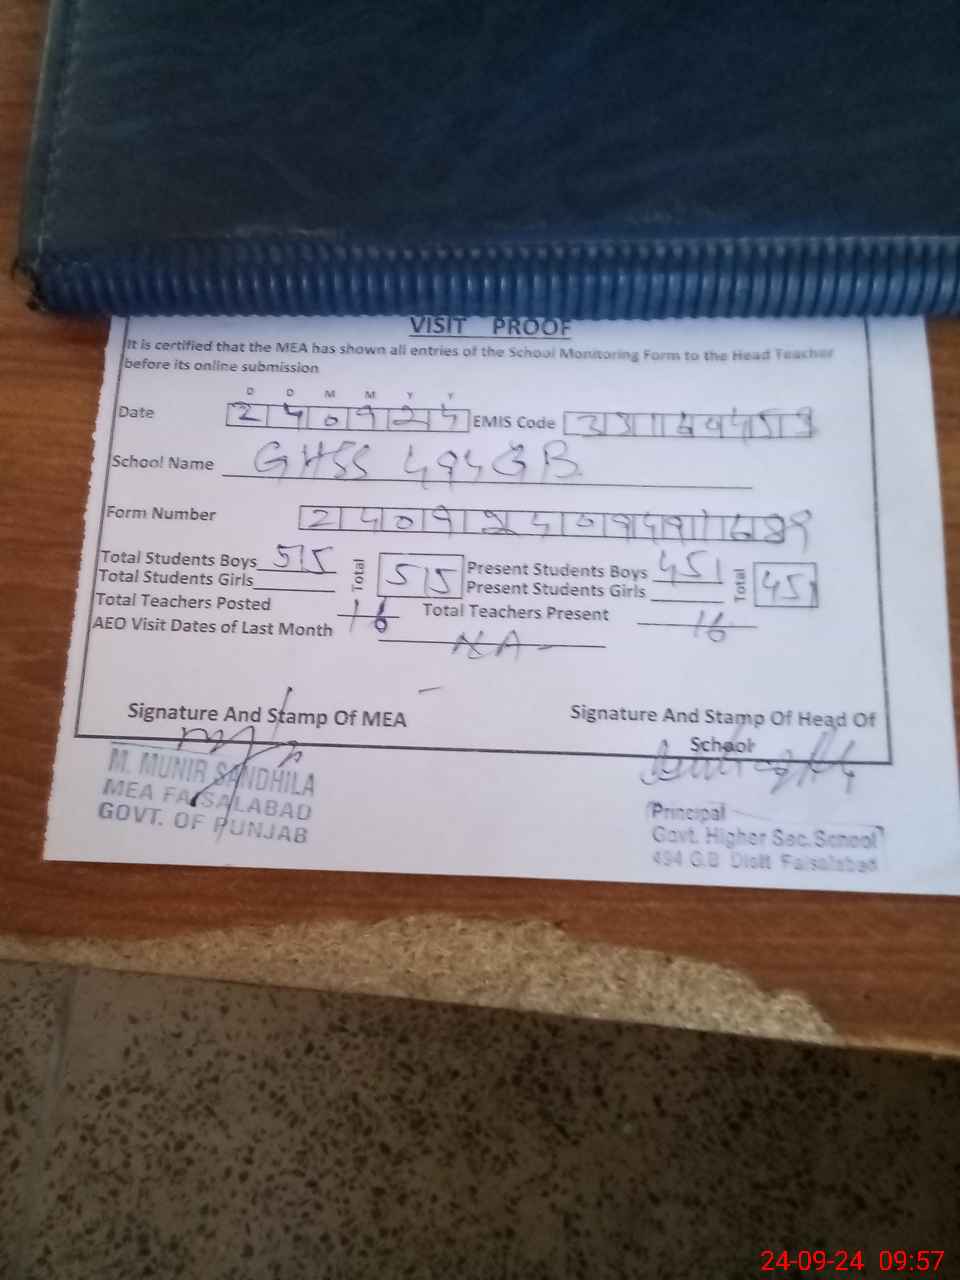 VISIT PROOF
It is certified that the MEA has shown all entries of the School Monitoring Form to the Head Teacher
before its online submission
D D M M Y Y
Date 240924 EMIS Code
School Name GHSS 494 GB
Form Number
Total Students Boys 515 Total 515 Present Students Boys 451 Total 451
Total Students Girls Present Students Girls
Total Teachers Posted 16 Total Teachers Present 16
AEO Visit Dates of Last Month NA
Signature And Stamp Of MEA Signature And Stamp Of Head Of
School
M. MUNIR SANDHILA
MEA FAISALABAD
GOVT. OF PUNJAB
Principal
Govt. Higher Sec. School
494 G.B Distt Faisalabad
24-09-24 09:57